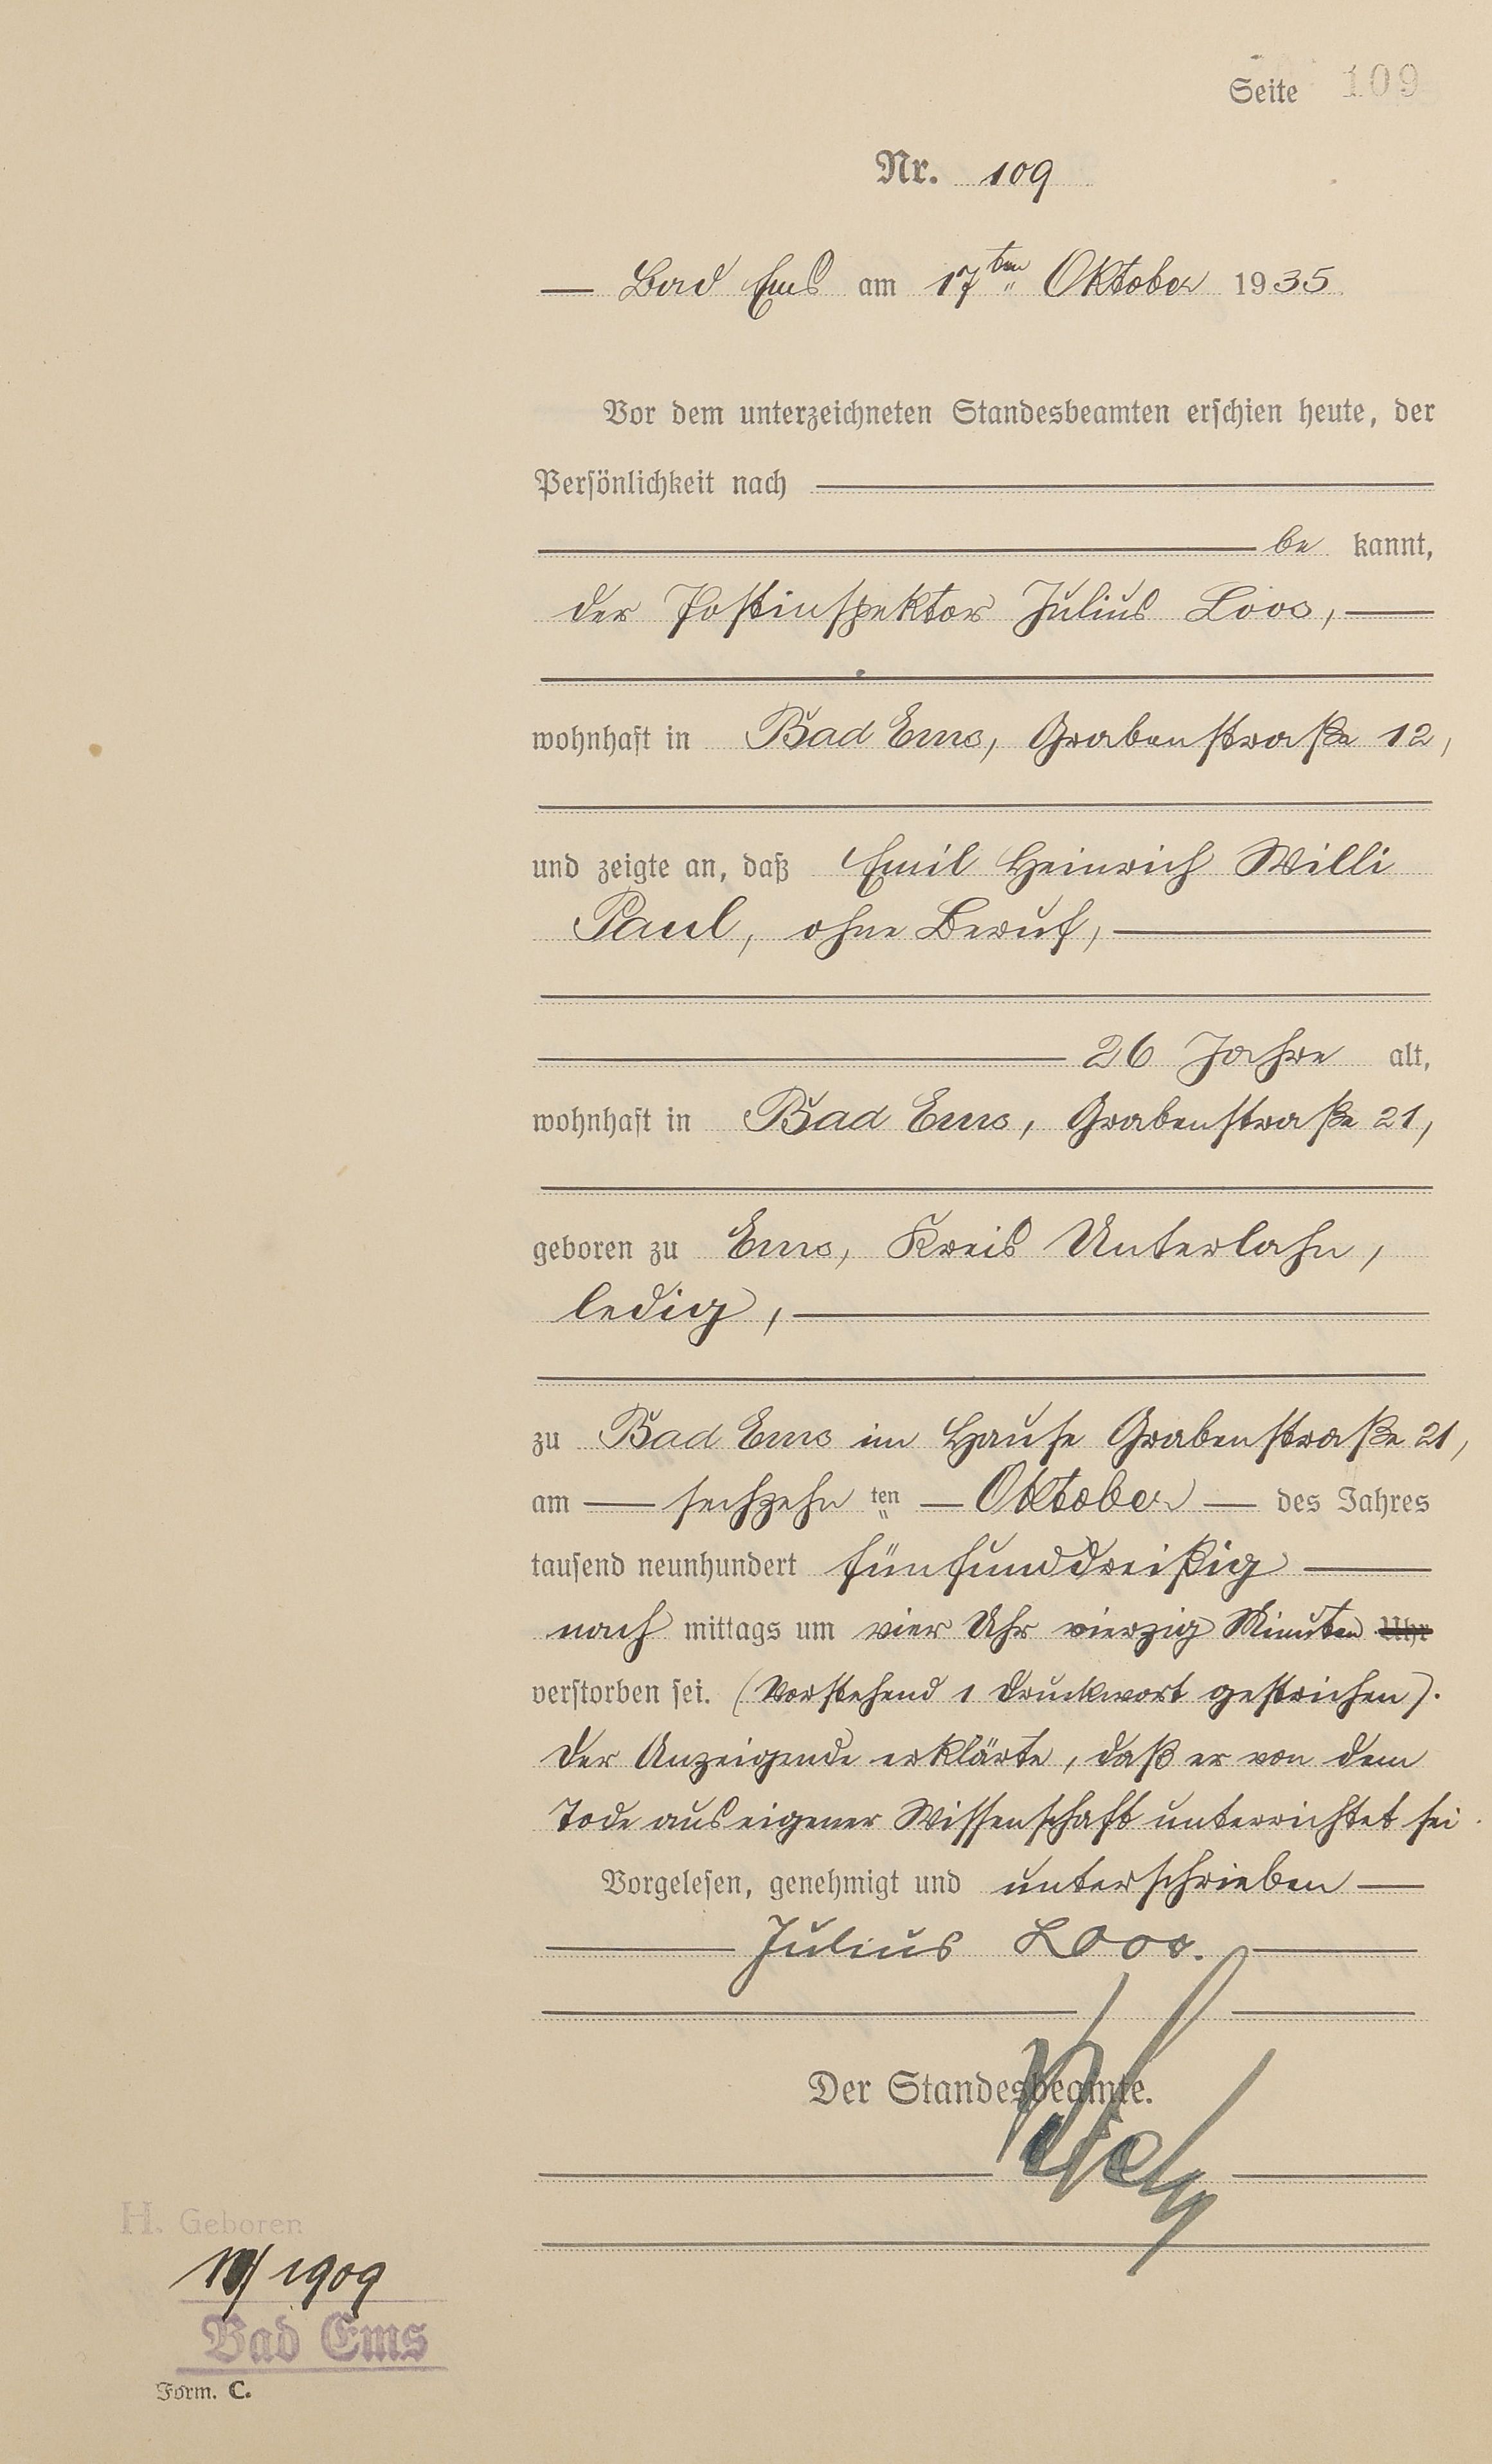 Seite 109
Nr. 109
Bad Ems am 17ten Oktober 1935
Vor dem unterzeichneten Standesbeamten erschien heute, der
Persönlichkeit nach
be kannt,
der Postinspektor Julius Loos,
wohnhaft in Bad Ems, Grabenstraße 12,
und zeigte an, daß Emil Heinrich Willi
Paul, ohne Beruf,
26 Jahre alt,
wohnhaft in Bad Ems, Grabenstraße 21,
geboren zu Ems, Kreis Unterlahn,
ledig,
zu Bad Ems im Hause Grabenstraße 21,
am sechzehn ten Oktober des Jahres
tausend neunhundert fünfunddreißig
nach mittags um vier Uhr vierzig Minuten Uhr
verstorben sei. (Vorstehend 1 Druckwort gestrichen).
Der Anzeigende erklärte, daß er von dem
Tode aus eigener Wissenschaft unterrichtet sei.
Vorgelesen, genehmigt und unterschrieben
Julius Loos.
Der Standesbeamte.
H. Geboren
1909
Bad Ems
Form. C.